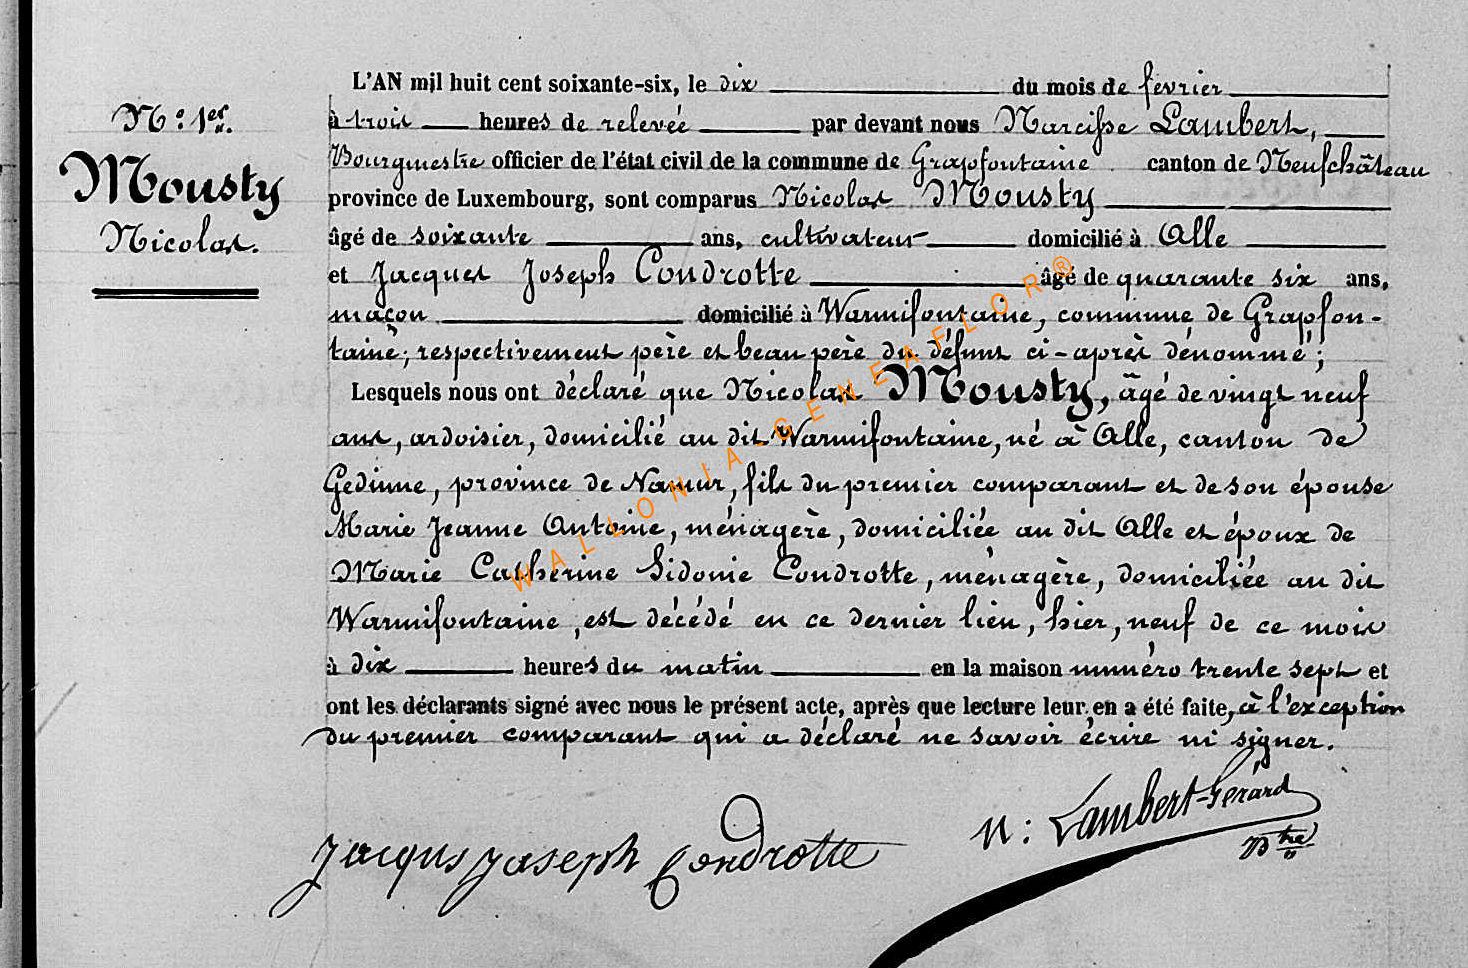 N.o 1er.
Mousty
Nicolas.
L'AN mil huit cent soixante-six, le dix du mois de février
à trois heures de relevée par devant nous Narcisse Lambert,
Bourgmestre officier de l'état civil de la commune de Grapfontaine canton de Neufchâteau
province de Luxembourg, sont comparus Nicolas Mousty
âgé de soixante ans, cultivateur domicilié à Alle
et Jacques Joseph Condrotte âgé de quarante six ans,
maçon domicilié à Warmifontaine, commune de Grapfon-
taine; respectivement père et beau père du défunt ci-après dénommé;
Lesquels nous ont déclaré que Nicolas Mousty, âgé de vingt neuf
ans, ardoisier, domicilié au dit Warmifontaine, né à Alle, canton de
Gedinne, province de Namur, fils du premier comparant et de son épouse
Marie Jeanne Antoine, ménagère, domiciliée au dit Alle et époux de
Marie Catherine Sidonie Condrotte, ménagère, domiciliée au dit
Warmifontaine, est décédé en ce dernier lieu, hier, neuf de ce mois
à dix heures du matin en la maison numéro trente sept et
ont les déclarants signé avec nous le présent acte, après que lecture leur en a été faite, à l'exception
du premier comparant qui a déclaré ne savoir écrire ni signer.
Jacqus Joseph Condrotte
N: Lambert-Gérard
Btre
WALLONIA-GENEAFLOR®